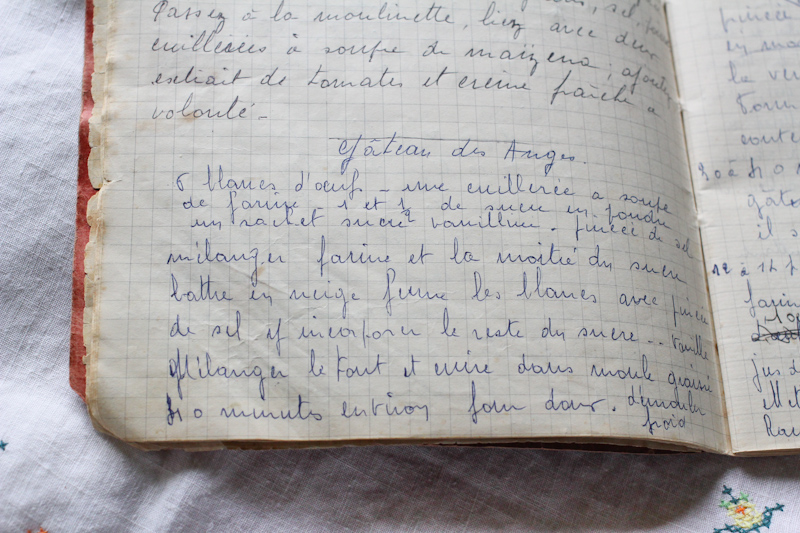 Passez à la moulinette, liez avec deux
cuillerées à soupe de maïzena, ajoutez
extrait de tomates et crème fraîche à
volonté -
Gâteau des Anges.
6 blancs d'œuf - une cuillerée a soupe
de farine - 1 et 1/2 de sucre en poudre
un sachet sucre vanilline - pincée de sel
mélanger farine et la moitié du sucre
battre en neige ferme les blancs avec pincée
de sel y incorporer le reste du sucre -- vanille
Mélanger le tout et cuire dans moule graissé
40 minutes environ four doux. démouler
froid
pincée
en mo
le ve
Torn
conte
gât
il s
12 à 14
farin
jus d
Met